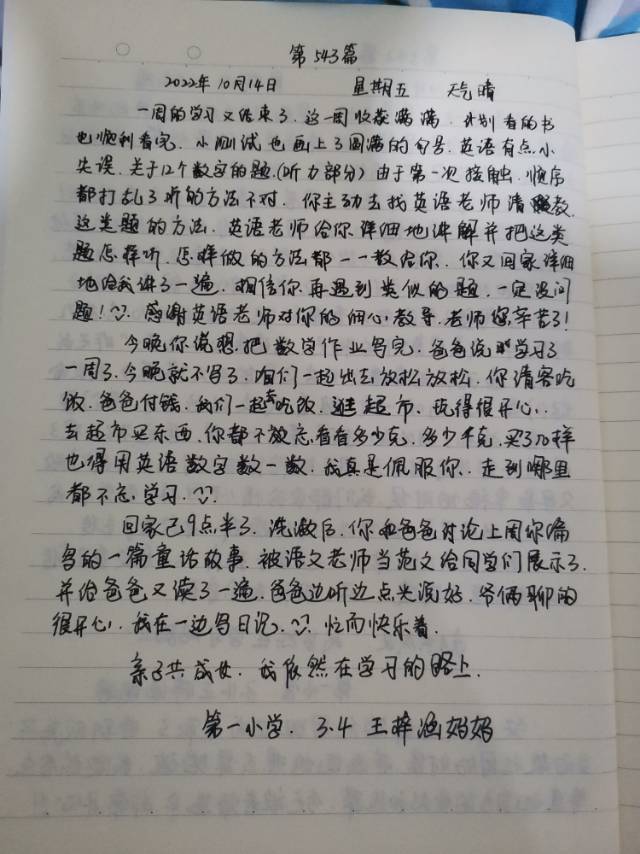 第543篇
2022年10月14日 星期五 天气晴
一周的学习又结束了.这一周收获满满.计划看的书
也顺利看完.小测试也画上了圆满的句号.英语有点小
失误.关于12个数字的题.(听力部分)由于第一次接触.顺序
都打乱了听的方法不对.你主动去找英语老师请教.
这类题的方法.英语老师给你详细地讲解并把这类
题怎样听.怎样做的方法都一一教给你.你又回家详细
地给我讲了一遍.相信你再遇到类似的题.一定没问
题!感谢英语老师对你的细心教导.老师您辛苦了!
今晚你说想把数学作业写完.爸爸说学习了
一周了.今晚就不写了.咱们一起出去放松放松.你请客吃
饭.爸爸付钱.我们一起去吃饭.逛超市.玩得很开心..
去超市买东西.你都不放忘看看多少克.多少千克.买了几样
也得用英语数字数一数.我真是佩服你.走到哪里
都不忘学习.
回家已9点半了.洗漱后.你和爸爸讨论上周你编
写的一篇童话故事.被语文老师当范文给同学们展示了.
并给爸爸又读了一遍.爸爸边听边点头说好.爷俩聊的
很开心.我在一边写日记.忙而快乐着.
亲子共成长.我依然在学习的路上.
第一小学.3.4 王梓涵妈妈